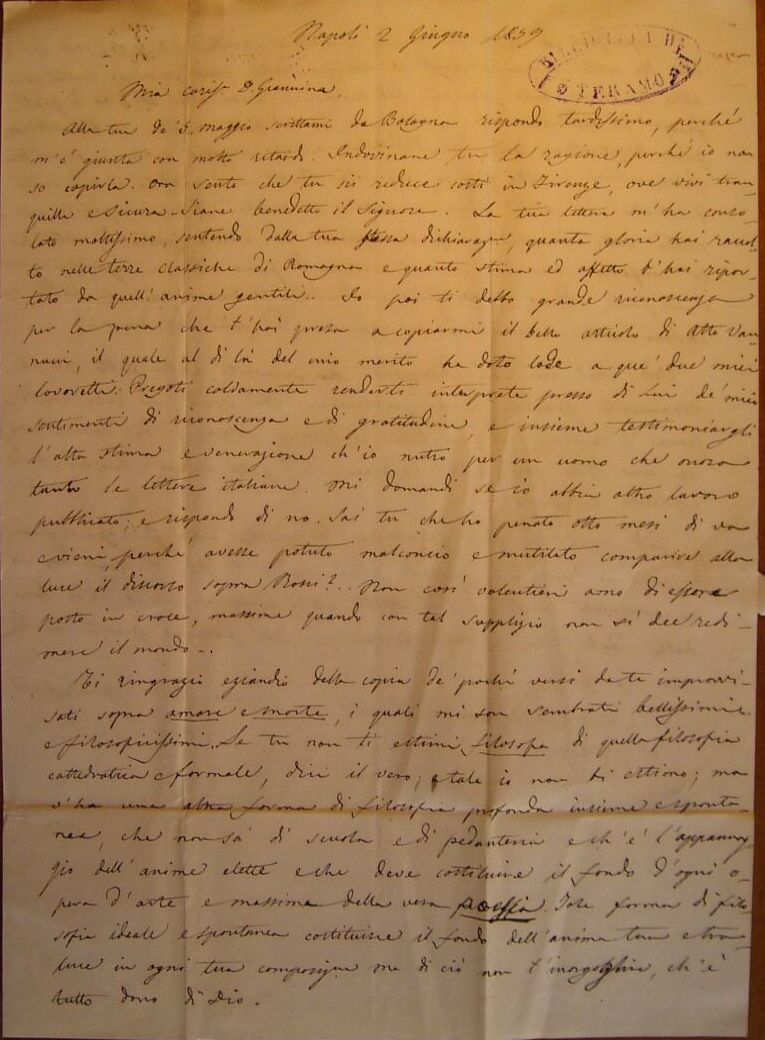 Napoli 2 Giugno 1859
BIBLIOTECA DI
TERAMO
Mia cariss. D. Giannina,
Alla tua de' 3 maggio scrittami da Bologna rispondo tardissimo, perché
m'è giunta con molto ritardo. Indovinane tu la ragione, perché io non
so capirla. Ora sento che tu sii reduce costì in Firenze, ove vivi tran-
quilla e sicura. Siane benedetto il Signore. La tua lettera m'ha conso-
lato moltissimo, sentendo dalla tua stessa dichiaraz., quanta gloria hai raccol-
to nelle terre classiche di Romagna e quanto stima ed affetto t'hai ripor-
tato da quell'anime gentili.. Io poi ti debbo grande riconoscenza
per la pena che t'hai presa a copiarmi il bello articolo di Atto Van-
nucci, il quale al di là del mio merito ha dato lode a que' due miei
lavoretti. Pregoti caldamente renderti interprete presso di Lui de' miei
sentimenti di riconoscenza e di gratitudine, e insieme testimoniargli
l'alta stima e venerazione ch'io nutro per un uomo che onora
tanto le lettere italiane. Mi domandi se io abbia altro lavoro
pubblicato; e rispondo di no. Sai tu che ho penato otto mesi di va
e vieni, perché avesse potuto malconcio e mutilato comparire alla
luce il discorso sopra Rossi?.. Non così volentieri amo di essere
posto in croce, massime quando con tal supplizio non si dee redi-
mere il mondo...
Ti ringrazio eziandio della copia de' pochi versi da te improvvi-
sati sopra amore e morte, i quali mi son sembrati bellissimi e
e filosofici. Se tu non ti estimi filosofa di quella filosofia
cattedratica e formale, dici il vero; e tale io non ti estimo; ma
v'ha una altra forma di filosofia profonda insieme e sponta-
nea, che non sa di scuola e di pedanteria e ch'è l'appannag-
gio dell'anime elette e che deve costituire il fondo d'ogni o-
pera d'arte e massime della vera poesia. Tale forma di filo-
sofia ideale e spontanea costituisce il fondo dell'anima tua e tra-
luce in ogni tua composiz. ma di ciò non t'inorgoglire, ch'è
tutto dono di Dio.